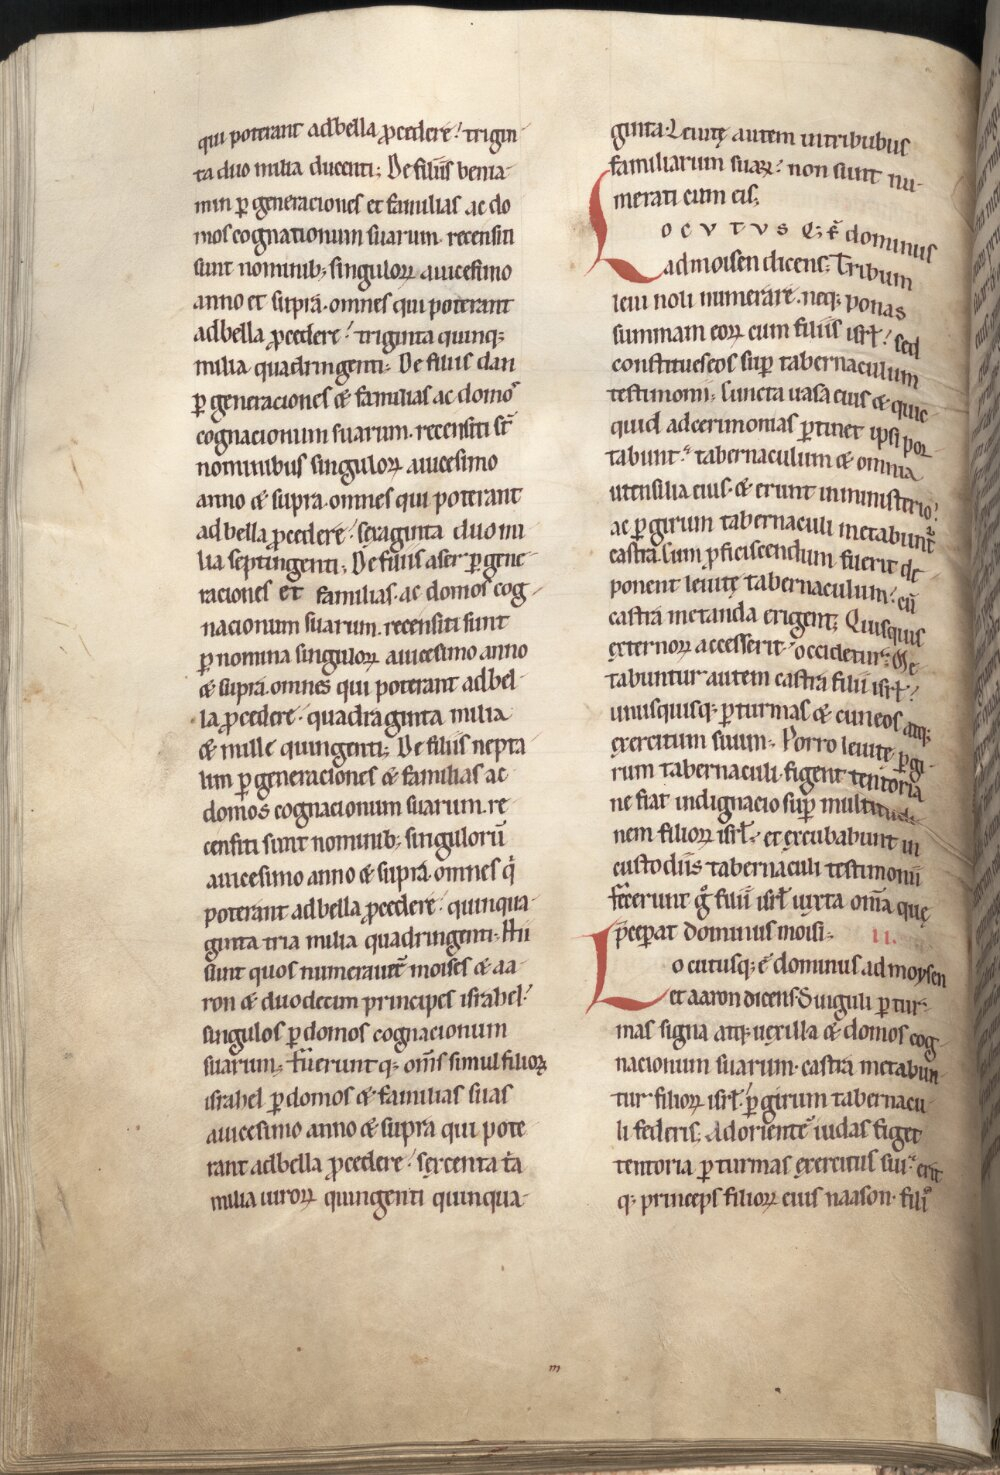 qui poterant ad bella ꝓcedere! trigin-
ta duo milia ducenti; De filiis benia-
min ꝑ generaciones et familias ac do
mos cognationum suarum. recensiti
sunt nominib; singuloꝝ a uicesimo
anno et supra. omnes qui poterant
ad bella ꝓcedere! triginta quinq;
milia quadringenti; De filiis dan
ꝑ generaciones & familias ac domoˢ
cognacionum suarum. recensiti st̄
nominibus singuloꝝ a uicesimo
anno & supra. omnes qui poterant
ad bella ꝓcedere! sexaginta duo mi
lia septingenti; De filiis aser ꝑ gene-
raciones et familias. ac domos cog-
nacionum suarum. recensiti sunt
ꝑ nomina singuloꝝ a uicesimo anno
& supra. omnes qui poterant ad bel-
la ꝓcedere. quadraginta milia
& mille quingenti; De filiis nepta
lim ꝑ generaciones & familias ac
domos cognacionum suarum. re
censiti sunt nominib; singulorū
a uicesimo anno & supra. omnes q̇
poterant ad bella ꝓcedere! quinqua-
ginta tria milia quadringenti. Hii
sunt quos numerauer̄t moises & aa-
ron & duodecim principes israhel!
singulos ꝑ domos cognacionum
suarum; Fuerunt q; om̄s simul filioꝝ
israhel ꝑ domos & familias suas
a uicesimo anno & supra qui pote
rant ad bella ꝓcedere! sexcenta t̄a
milia uiroꝝ quingenti quinqua-
ginta. Leuitę autem in tribubus
familiarum suaꝝ! non sunt nu-
merati cum eis;
LOCVTVS Q; ē dominus
ad moisen dicens; Tribum
leui noli numerare. neq; ponas
summam eoꝝ cum filiis isrł! sed
constitues eos sup̱ tabernaculum
testimonii; Cuncta uasa eius & quic
quid ad cerimonias ꝑtinet ipsi por
tabunt! tabernaculum & omnia
utensilia eius. & erunt in ministerio!
ac ꝑ girum tabernaculi metabunt̄
castra. Cum ꝓficiscendum fuerit de-
ponent leuitę tabernaculum! cū
castra metanda erigent; Quisquis
externoꝝ accesserit! occidetur; Me-
tabuntur autem castra filii isrł!
unusquisq; ꝑ turmas & cuneos atq;
exercitum suum; Porro leuitę ꝑ gi-
rum tabernaculi. figent tentoria
ne fiat indignacio sup̱ multitudi-
nem filioꝝ isrł! et excubabunt in
custodiis tabernaculi testimonii
fecerunt g̊ filii isrł iuxta om̄a quę
p̄cep̱at dominus moisi; II.
Locutusq; ē dominus ad moysen
et aaron dicens. Singuli ꝑ tur-
mas signa atq; uexilla & domos cog
nacionum suarum. castra metabun-
tur filioꝝ isrł! ꝑ girum tabernacu-
li federis; Ad oriente iudas figet
tentoria ꝑ turmas exercitus sui! erit
q; princeps filioꝝ eius naason. filiˢ
m